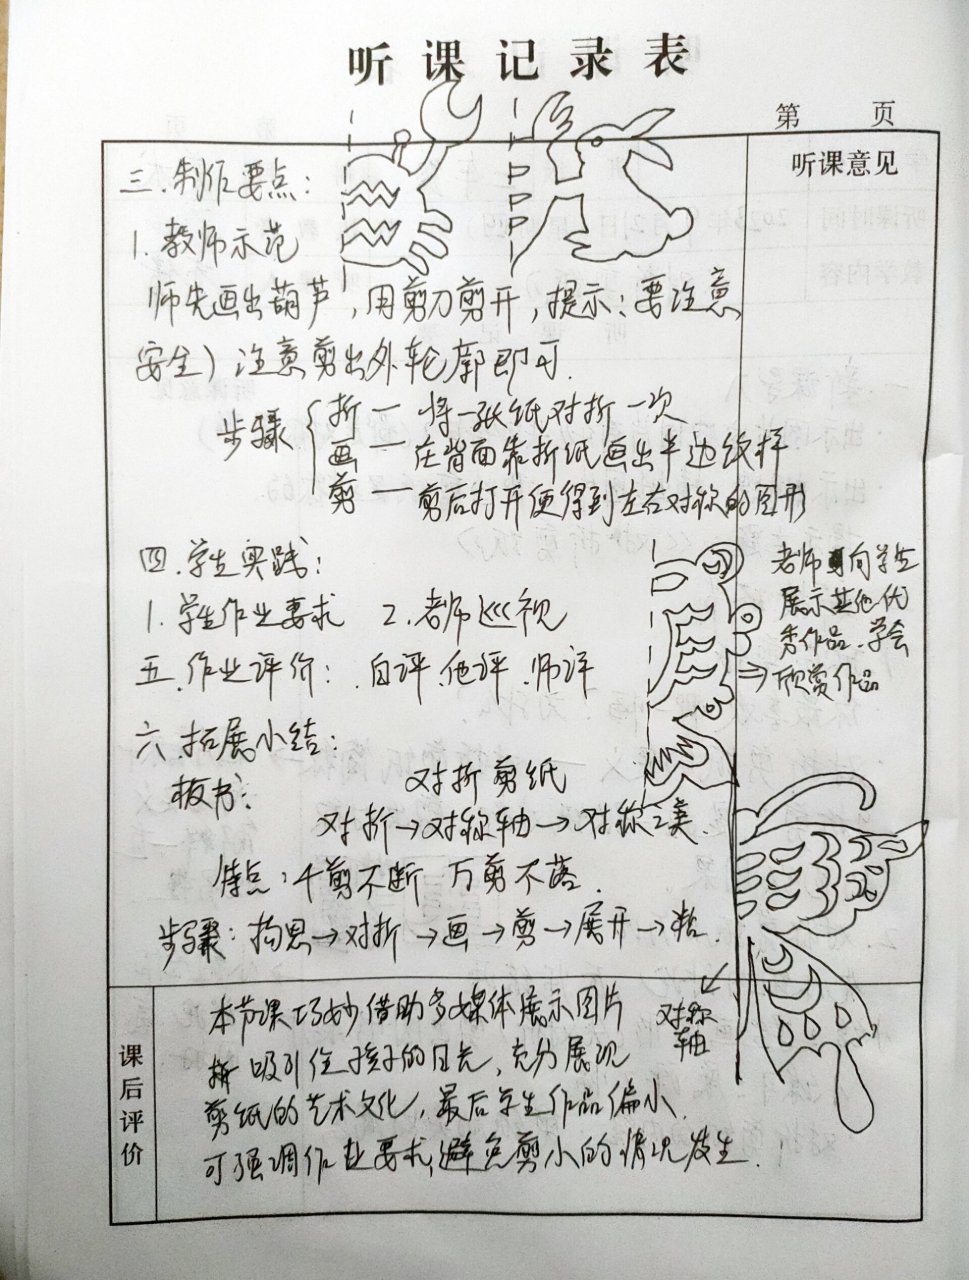 听课记录表
第 页
听课意见
三.制作要点:
1.教师示范
师先画出葫芦,用剪刀剪开,提示:要注意
安全)注意剪出外轮廓即可.
步骤{折一 将一张纸对折一次
画一 在背面靠折纸画出半边纹样
剪一 剪后打开便得到左右对称的图形
四.学生实践:
1.学生作业要求 2.老师巡视
五.作业评价:自评.他评.师评
老师向学生
展示其他优
秀作品.学会
⇒欣赏作品
六 拓展小结:
板书: 对折剪纸
对折→对称轴→对称之美.
特点:千剪不断 万剪不落.
步骤:构思→对折→画→剪→展开→粘.
对称
轴
课后评价
本节课巧妙借助多媒体展示图片
吸引住孩子的目光,充分展现
剪纸的艺术文化,最后学生作品偏小.
可强调作业要求,避免剪小的情况发生.